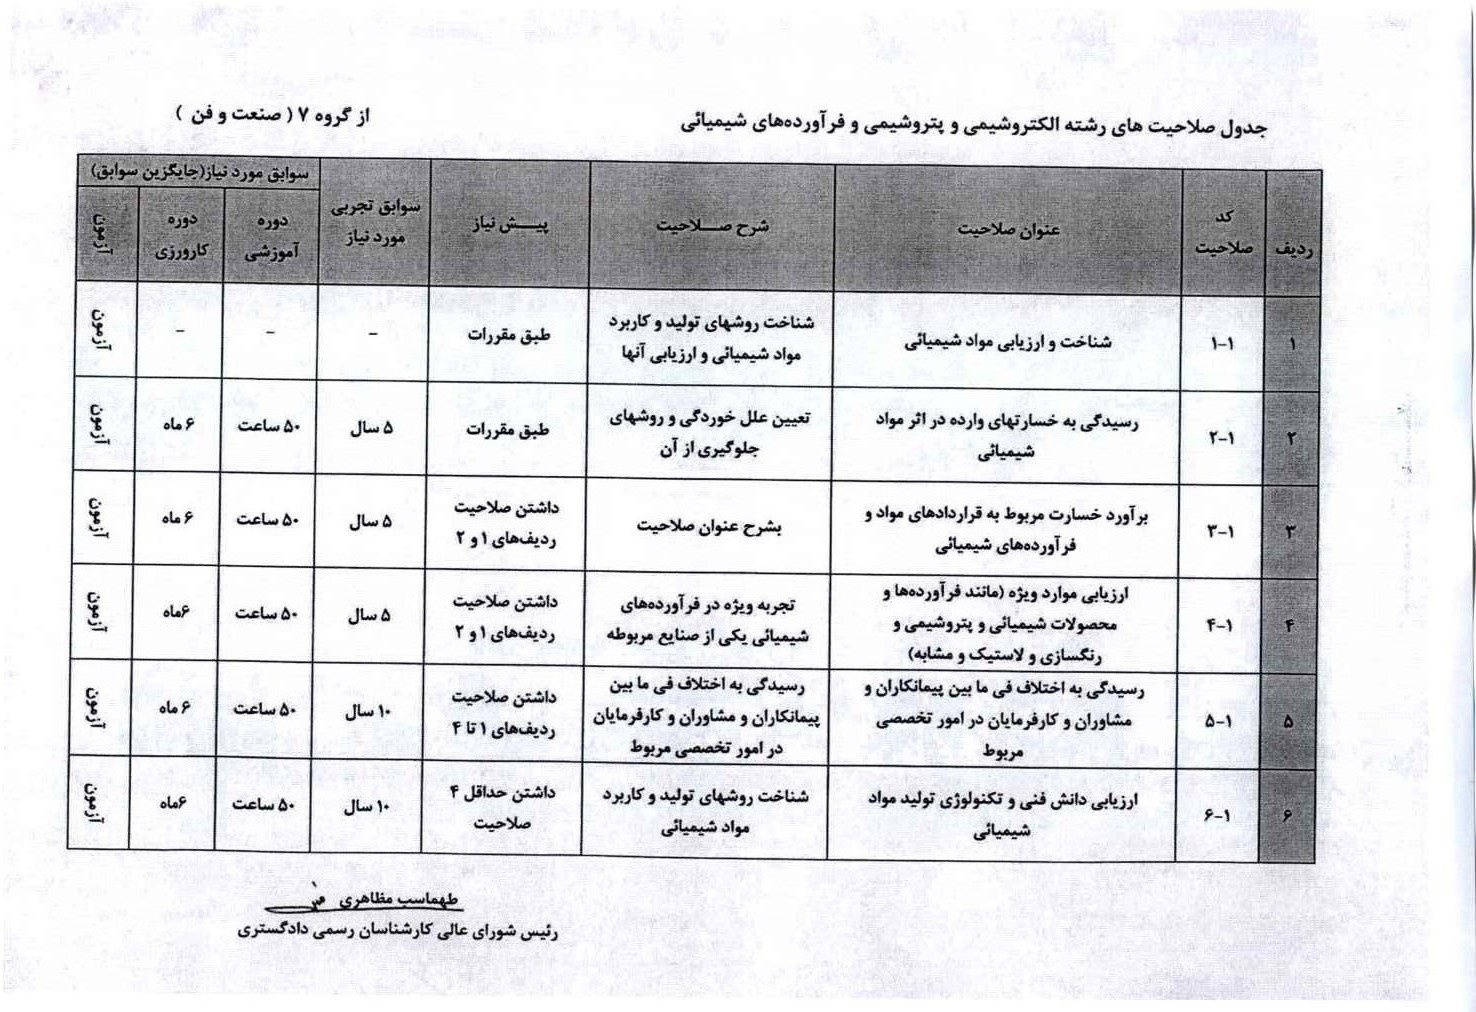 جدول صلاحیت های رشته الکتروشیمی و پتروشیمی و فرآورده‌های شیمیائی
از گروه ۷ ( صنعت و فن )
ردیف
کد
صلاحیت
عنوان صلاحیت
شرح صـــلاحیت
پیــــش نیاز
سوابق تجربی
مورد نیاز
سوابق مورد نیاز(جایگزین سوابق)
دوره
آموزشی
دوره
کارورزی
آزمون
۱
۱-۱
شناخت و ارزیابی مواد شیمیائی
شناخت روشهای تولید و کاربرد
مواد شیمیائی و ارزیابی آنها
طبق مقررات
–
–
–
آزمون
۲
۲-۱
رسیدگی به خسارتهای وارده در اثر مواد
شیمیائی
تعیین علل خوردگی و روشهای
جلوگیری از آن
طبق مقررات
۵ سال
۵۰ ساعت
۶ ماه
آزمون
۳
۳-۱
برآورد خسارت مربوط به قراردادهای مواد و
فرآورده‌های شیمیائی
بشرح عنوان صلاحیت
داشتن صلاحیت
ردیف‌های ۱ و ۲
۵ سال
۵۰ ساعت
۶ ماه
آزمون
۴
۴-۱
ارزیابی موارد ویژه (مانند فرآورده‌ها و
محصولات شیمیائی و پتروشیمی و
رنگسازی و لاستیک و مشابه)
تجربه ویژه در فرآورده‌های
شیمیائی یکی از صنایع مربوطه
داشتن صلاحیت
ردیف‌های ۱ و ۲
۵ سال
۵۰ ساعت
۶ماه
آزمون
۵
۵-۱
رسیدگی به اختلاف فی ما بین پیمانکاران و
مشاوران و کارفرمایان در امور تخصصی
مربوط
رسیدگی به اختلاف فی ما بین
پیمانکاران و مشاوران و کارفرمایان
در امور تخصصی مربوط
داشتن صلاحیت
ردیف‌های ۱ تا ۴
۱۰ سال
۵۰ ساعت
۶ ماه
آزمون
۶
۶-۱
ارزیابی دانش فنی و تکنولوژی تولید مواد
شیمیائی
شناخت روشهای تولید و کاربرد
مواد شیمیائی
داشتن حداقل ۴
صلاحیت
۱۰ سال
۵۰ ساعت
۶ماه
آزمون
طهماسب مظاهری
رئیس شورای عالی کارشناسان رسمی دادگستری